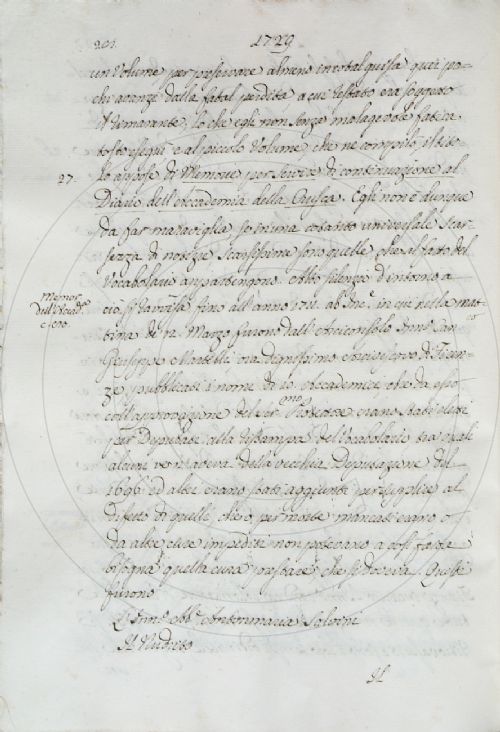 201 1729
un Volume per preservare almeno in cotal guisa quei po-
chi avanzi dalla fatal perdita a cui restato era soggetto
il rimanente, lo che egli non senza malagevole fatica
tosto eseguì e al piccolo Volume, che ne compilò, il tito-
27. lo appose di Memorie per servire di continuazione al
Diario dell'Accademia della Crusca. Egli non è dunque
da far maraviglia se in una cotanto universale scar-
sezza di notizie scarsissime sono quelle, che al fatto del
Vocabolario appartengono. Alto silenzio d'intorno a
Memor.
dell'Accad.
ciò si fino all'anno 1701. ab Inc. in cui nella mat-
tina de' 12. Marzo furono dall'Arciconsolo
Giuseppe Martelli ora degnissimo Arcivescovo di Firen-
ze, pubblicati i nomi di 10. Accademici, che da esso
coll'approvazione del Ser.mo Protettore erano stati eletti
per Deputati alla ristampa del Vocabolario tra quali
alcuni ven'aveva della vecchia Deputazione del
1696. ed altri erano stati aggiunti per supplire al
difetto di quelli, che o per morte mancati erano o
da altre cure impediti non potevano a così fatta
bisogna quella cura prestare, che si doveva. Questi
furono
L'Ab. Antonmaria Salvini
Il
Il